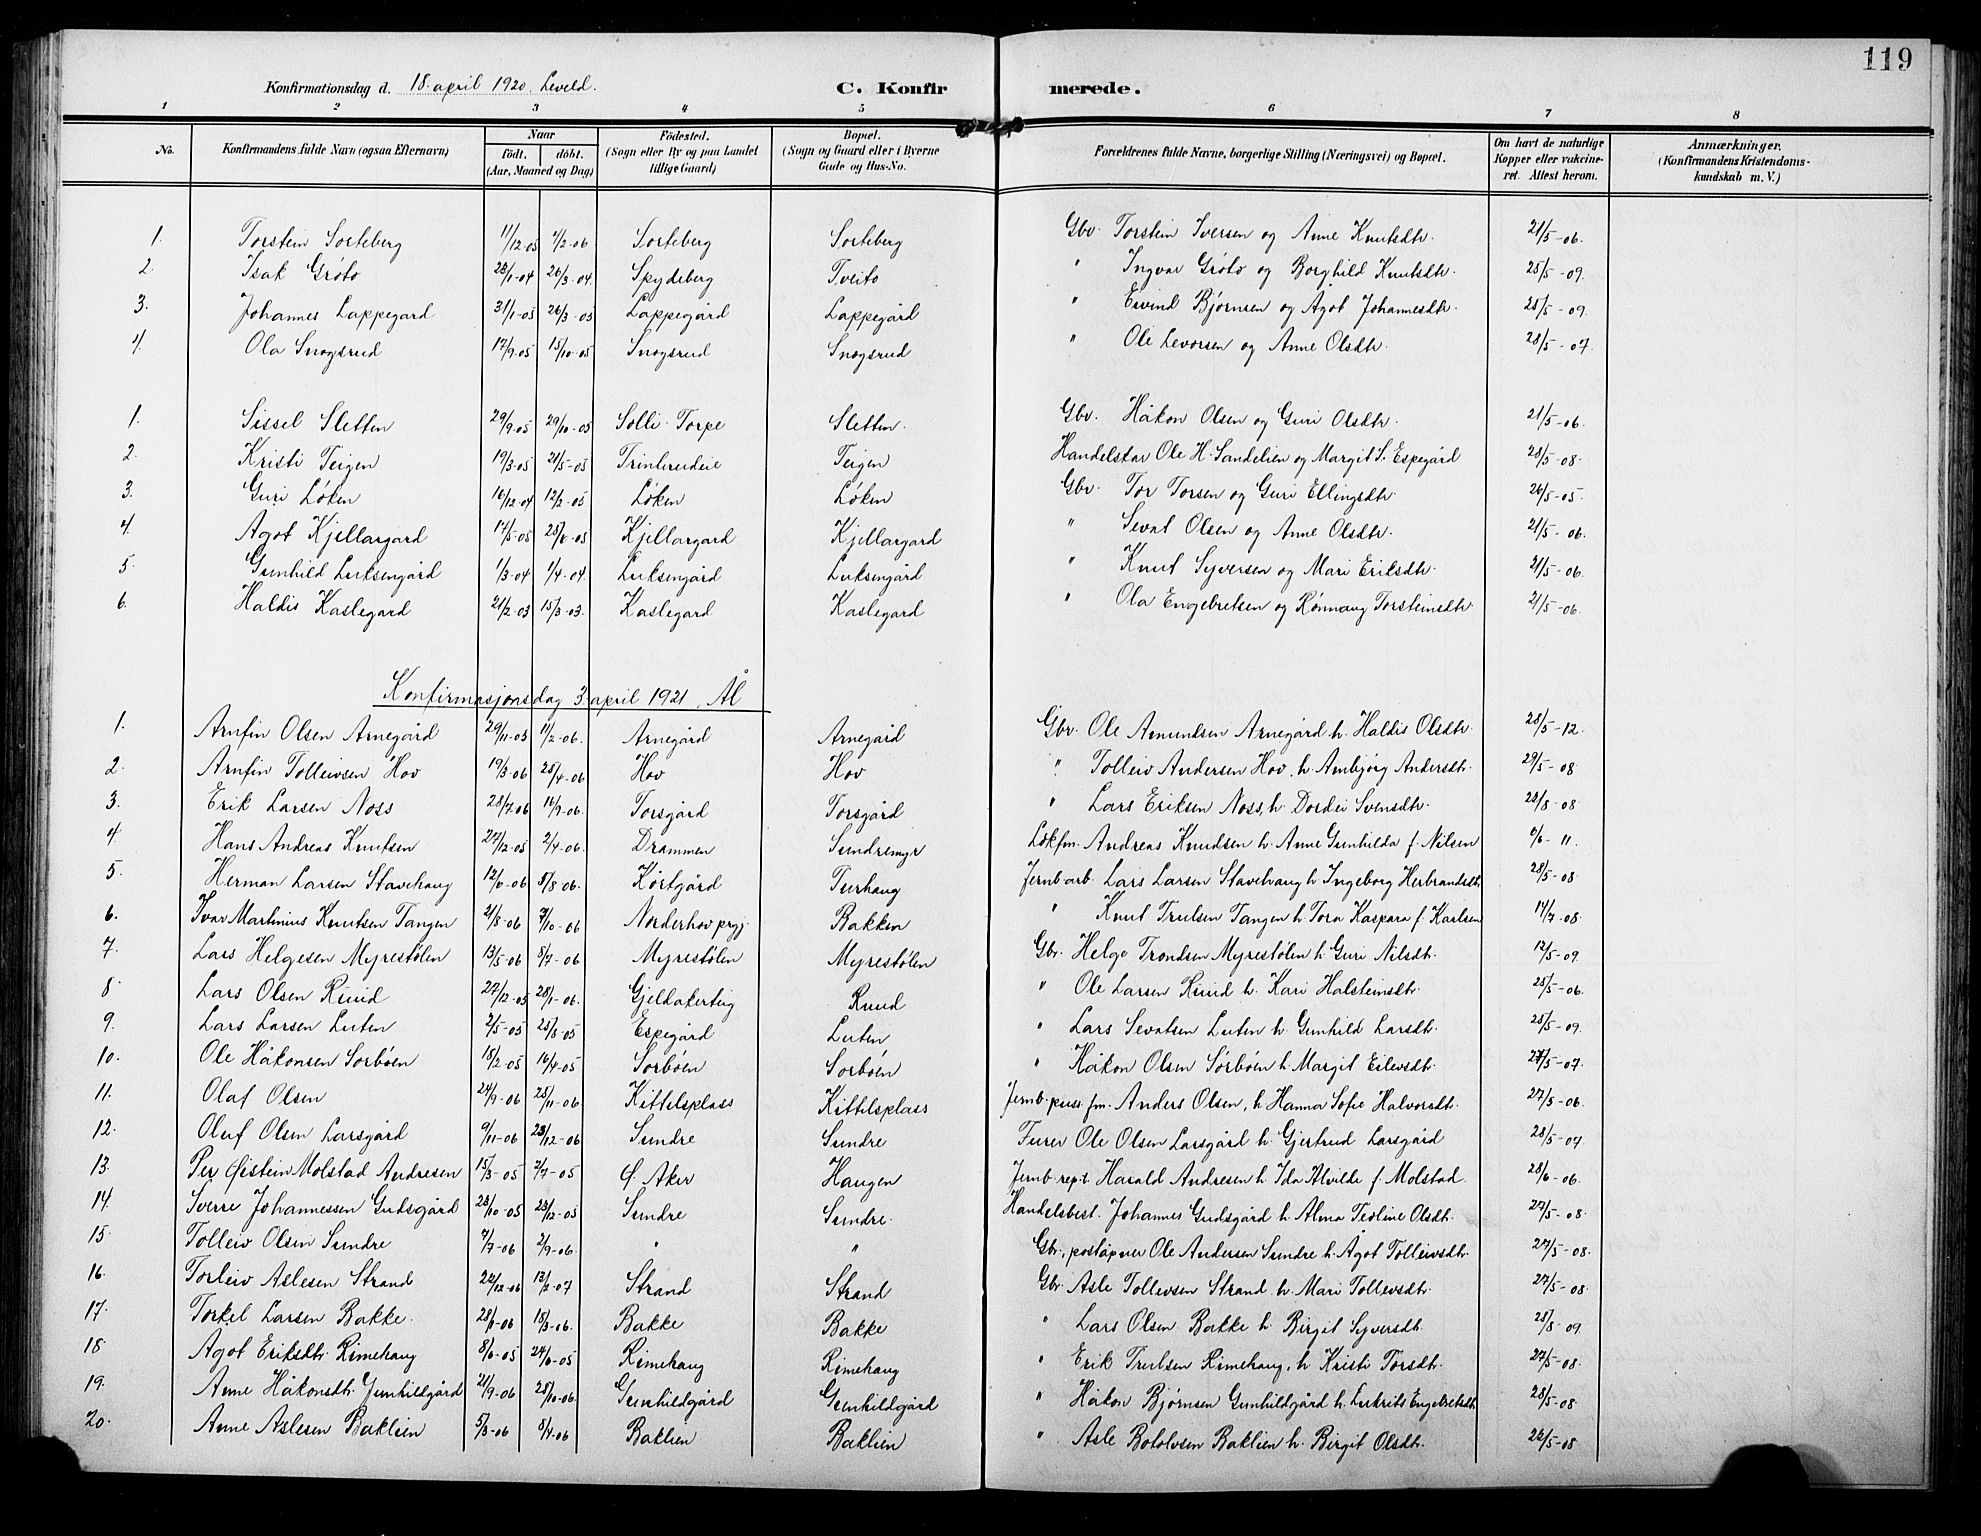 119
Konfirmationsdag d. 18. april 1920. Leveld. C. Konfirmerede.
1 2 3 4 5 6 7 8
No. Konfirmandens fulde Navn (ogsaa Efternavn) Naar født. døbt. (Aar, Maaned og Dag) Fødested. (Sogn eller By og paa Landet tillige Gaard) Bopæl. (Sogn og Gaard eller i Byerne Gade og Hus-No. Forældrenes fulde Navne, borgerlige Stilling (Næringsvei) og Bopæl. Om havt de naturlige Kopper eller vakcineret. Attest herom. Anmærkninger. (Konfirmandens Kristendomskundskab m. V.)
1. Torstein Sorteberg 11/12-05 4/2-06 Sorteberg Sorteberg Gbr. Torstein Iversen og Anne Knutsdtr. 21/5-06.
2. Isak Gröto 28/1-04 26/3-04. Spydeberg Tveito " Ingvar Gröto og Borghild Knutsdtr. 25/5-09.
3. Johannes Lappegard 31/1-05 26/3-05 Lappegård Lappegård " Eivind Bjørnsen og Agot Johannesdtr. 25/5-09.
4. Ola Snogsrud 17/9-05 15/10-05 Snogsrud Snogsrud " Ole Levorsen og Anne Olsdtr. 28/5-07.
1. Sissel Sletten 29/9-05 29/10-05 Solli Torpe Sletten. Gbr. Håkon Olsen og Guri Olsdtr. 21/5-06.
2. Kristi Teigen 19/3-05 21/5-05 Trintrudeie Teigen Handelskar Ole H. Sandelien og Margit S. Espegård 28/5-08.
3. Guri Löken 16/12-04 12/2-05 Löken Löken Gbr. Tor Torsen og Guri Ellingsdtr. 26/5-05.
4. Agot Kjellargard 14/5-05 Kjellargard Kjellargard " Sevat Olsen og Anne Olsdtr. 21/5-06.
5. Gunhild Luksengård 1/3-04 1/4-04. Luksengård Luksengård " Knut Syversen og Mari Eriksdtr. 21/5-06.
6. Haldis Kaslegard 21/2-03 15/3-03. Kaslegard Kaslegard " Ola Engebretsen og Rönnaug Torsteinsdtr 21/5-06.
Konfirmasjonsdag 3. april 1921. Ål
1. Arnfin Olsen Arnegård 29/11-05 11/2-06. Arnegård Arnegård Gbr. Ole Amundsen Arnegård h. Haldis Olsdtr. 28/5-12.
2. Arnfin Tolleivsen Hov 19/3-06 25/4-06 Hov Hov " Tolleiv Andersen Hov, h. Ambjørg Andersdtr. 29/5-08
3. Erik Larsen Noss 28/7-06 16/9-06. Torsgård Torsgård " Lars Eriksen Noss, h. Dordei Svensdtr. 28/8-08.
4. Hans Andreas Knutsen 27/12-05 2/4-06. Drammen Sundremyr Lokfm. Andreas Knudsen h. Anne Gunhilda f. Nilsen 6/6-11.
5. Herman Larsen Stavehaug 12/6-06 5/8-06. Körtgård Turhaug Jernb.arb. Lars Larsen Stavehaug h. Ingeborg Herbrandsdtr. 28/5-08.
6. Ivar Martinius Knutsen Tangen 21/8-06 7/10-06 Norderhov prgj. Bakken " Knut Trulsen Tangen h. Tora Kaspara f. Karlsen 14/7-08.
7. Lars Helgesen Myrestölen 13/5-06 8/7-06 Myrestölen Myrestölen Gbr. Helge Trondsen Myrestölen h. Guri Nilsdtr. 12/5-09.
8. Lars Olsen Ruud 27/12-05 28/1-06. Gjeldakerteig Ruud " Ole Larsen Ruud h. Kari Halsteinsdtr. 25/5-06.
9. Lars Larsen Luten 2/5-05 28/5-05 Espegård Luten " Lars Sevatsen Luten h. Gunhild Larsdtr. 25/5-09.
10. Ole Håkonsen Sorböen 18/2-05 16/4-05 Sorböen Sorböen " Håkon Olsen Sørbøen h. Margit Eilevsdtr. 27/5-07.
11. Olaf Olsen 24/9-06 25/11-06 Kittilsplass Kittilsplass Jernb.puss.fm. Anders Olsen, h. Hanna Sofie Halvorsdtr. 27/5-06.
12. Oluf Olsen Larsgård 9/11-06 23/12-06 Sundre Sundre Furer Ole Olsen Larsgård h. Gjertrud Larsgård 28/5-07
13. Per Øistein Molstad Andresen 15/3-05 2/7-05 Ø. Aker Haugen Jernb.rep.t. Harald Andresen h. Ida Alvilde f. Molstad. 28/6-06.
14. Sverre Johannessen Gudsgård 23/10-05 23/12-05 Sundre Sundre. Handelsbest. Johannes Gudsgård h. Alma Teoline Olsdtr. 27/5-08.
15. Tolleiv Olsen Sundre 7/7-06 2/9-06. " " Gbr., poståpner Ole Andersen Sundre h. Ågot Tolleivsdtr. 27/5-08.
16. Torleiv Aslesen Strand 22/12-06 13/2-07 Strand Strand Gbr. Asle Tollevsen Strand h. Mari Tollevsdtr. 27/5-08.
17. Torkel Larsen Bakke. 18/3-06. Bakke Bakke " Lars Olsen Bakke h. Birgit Syversdtr. 25/8-09.
18 Agot Eriksdtr. Rimehaug 8/6-05 24/6-05 Rimehaug Rimehaug " Erik Trulsen Rimehaug, h. Kristi Torsdtr. 27/5-08.
19. Anne Håkonsdtr. Gunhildgård 21/9-06 28/10-06. Gunhildgård Gunhildgård " Håkon Bjørnsen Gunhildgård h. Lukrits Engebretsdtr. 28/5-08
20. Anne Aslesen Baklien 5/3-06 8/4-06 Baklien Baklien " Asle Botolvsen Baklien h. Birgit Olsdtr. 22/5-08